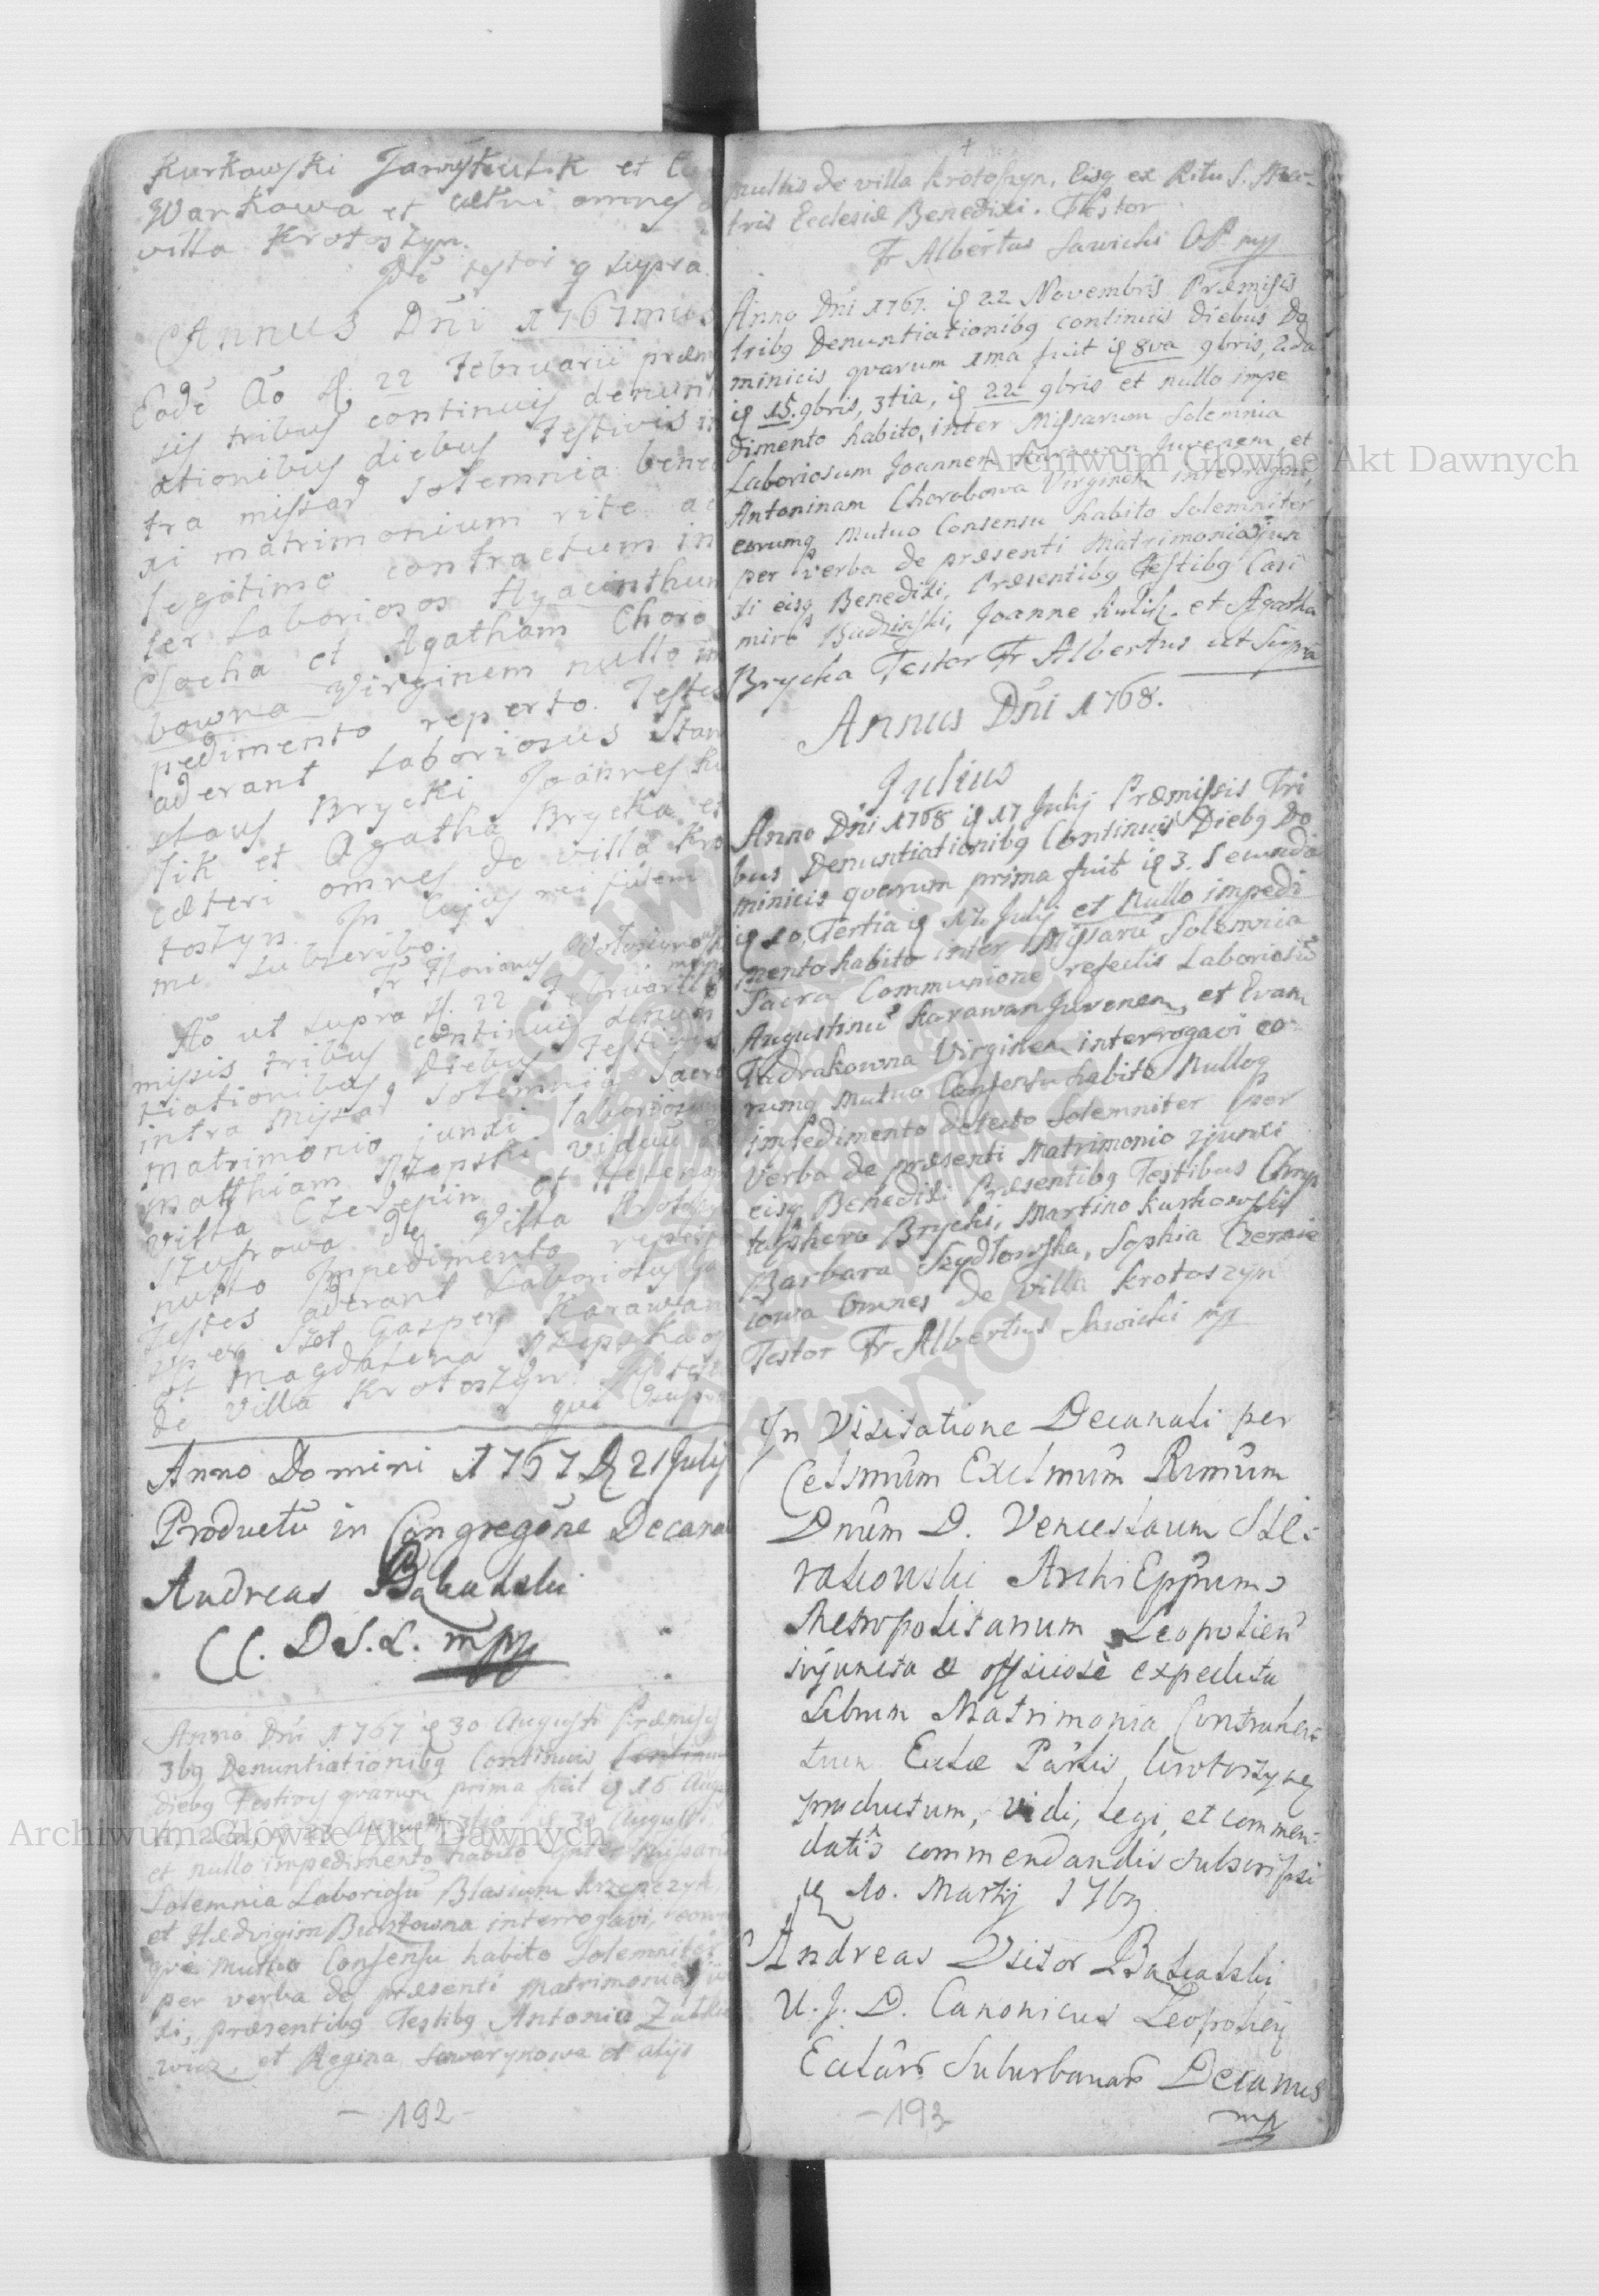 Kurkowski Jarmskulik et
Warkowa et cætri omnes
villa Krotoszyn.
testor q supra.
Annus Dni 1767mus
Eodē Ao d. 22 Februarii præm
sis tribus continuis denunt
ationibus diebus Festivis in
tra missar solemnia bened
xi matrimonium rite ac
legitime contractum in
ter Laboriosos Hyacinthum
Socha et Agatham Choro
bowna Virginem nullo im
pedimento reperto. Testes
aderant Laboriosus Stani
slaus Brycki Joannes Ku
lik et Agatha Brycka et
cæteri omnes de villa Kro
toszyn. In Cujus rei fidem
me subscribo.
Fr Florianus
Ao ut supra d. 22 Februarii
missis tribus continuis denun
tiationibus diebus Festivis
intra Missar solemnia Sacro
matrimonio junxi laboriosum
Matthiam Rzepski viduū de
villa Czerepin et Helenam
Szustrowa de Villa Krotosz
nullo Impedimento reperto
Testes aderant Laboriosus Ga
sper Szot Gasper Karawan
et Magdalena Rzepska
de Villa Krotoszyn.
qui supra
Anno Domini 1767 D 21 Julij
Productū in Congregōne Decana
Andreas
CC. D S. L. mpp
Anno Dni 1767 id 30 Augusti Præmisis
3bq Denuntiationibq Continuis
diebq Festivis qvarum prima fuit id 16 Aug
30 Augusti
et nullo impedimento habito inter Missaru
Solemnia Laboriosū Blasium Krzepczyk,
et Hedvigim interrogavi, eoru
qve mutuo Consensu habito Solemniter
per verba de præsenti Matrimonio
xi, præsentibq Testibq Antonio
wicz, et Regina Sawarynowa et alijs
- 192 -
multis de villa Krotoszyn, Eisq ex Ritu S. Ma-
tris Ecclesiæ Benedixi. Testor
Fr Albertus Sawicki OP mp
Anno Dni 1767. id 22 Novembris Præmisis
tribq Denuntiationibq continuis diebus Do
minicis qvarum 1ma fuit id 8va 9bris, 2da
id 15. 9bris, 3tia, id 22 9bris et nullo impe
dimento habito, inter Missarum Solemnia
Laboriosum Joannem Karawan Juvenem, et
Antoninam Chorobowa Virginem interrogavi,
eorumq Mutuo Consensu habito Solemniter
per verba de præsenti Matrimonio jun
xi eisq Benedixi, Præsentibq Testibq Casi
miro Budzinski, Joanne Kulik, et Agatha
Brycka Testor Fr Albertus ut Supra
Annus Dni 1768.
Julius
Anno Dni 1768 id 17 Julij Præmissis Tri
bus Denuntiationibq Continuis Diebq Do
minicis qvarum prima fuit id 3. Secunda
id 10, Tertia id 17. Julij et Nullo impedi
mento habito inter Missarū Solemnia
Sacra Communione refectis Laboriosū
Augustinū Karawan Juvenem, et Evam
Fudrakowna Virginem interrogavi eo-
rumq Mutuo Consensu habito Nulloq
impedimento detecto Solemniter per
Verba de præsenti Matrimonio junxi
eisq Benedixi Præsentibq Testibus Chrys
tophoro Brycki, Martino Kurkowski
Barbara Szydłowska, Sophia Czernie
iowa Omnes de villa Krotoszyn
Testor Fr Albertus Sawicki mp
In Visitatione Decanali per
Celsmūm Exclmūm Rvmūm
Dnūm D. Venceslaum Sie-
rakowski ArchiEppum
Metropolitanum Leopolien
injuncta & officiosè expedita
Librum Matrimonia Contrahen-
tium Eccłæ Parlis Krotoszynen
productum, vidi, legi, et commen-
datis commendandis subscripsi
D 10. Martij 176
Andreas Visitor
U. J. D. Canonicus Leopolien
Ecclāru Suburbanaru Decanus
mp
- 193 -
Archiwum Główne Akt Dawnych
Archiwum Główne Akt Dawnych